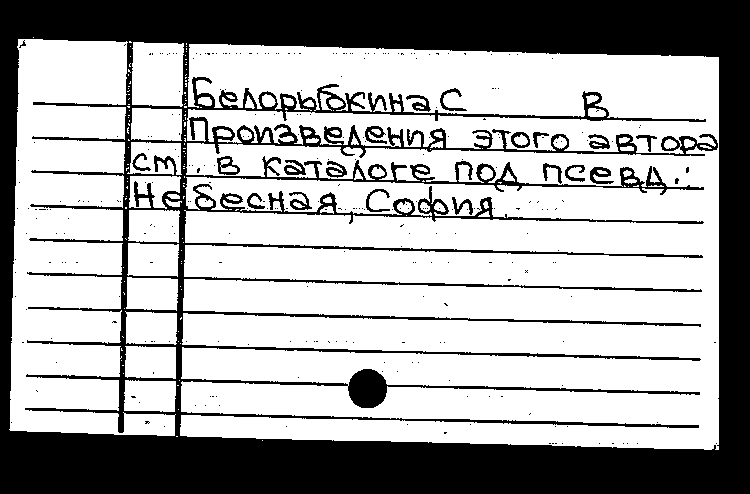 Белорыбкина, С В
Произведения этого автора
см. в каталоге под псевд.:
Небесная, София.